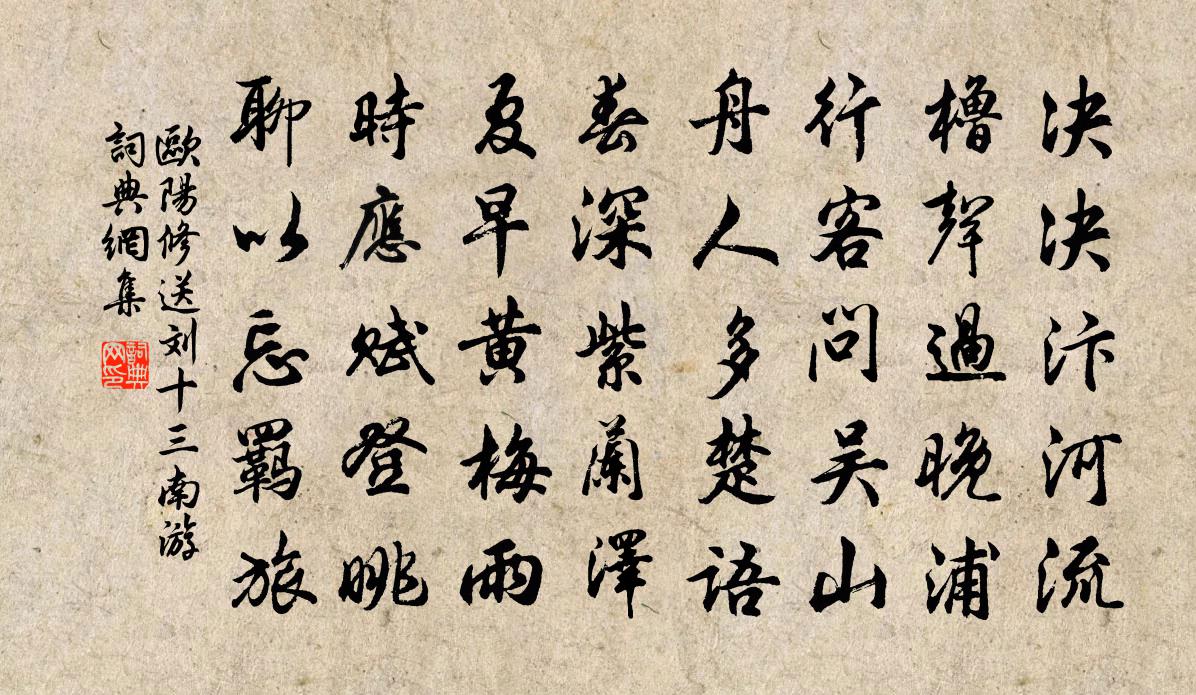 决决汴河流
櫓聲過晚浦
行客問吴山
舟人多楚語
春深紫蘭澤
夏早黄梅雨
時應賦登眺
聊以忘羈旅
歐陽修送刘十三南游
詞典網集
詞典网印